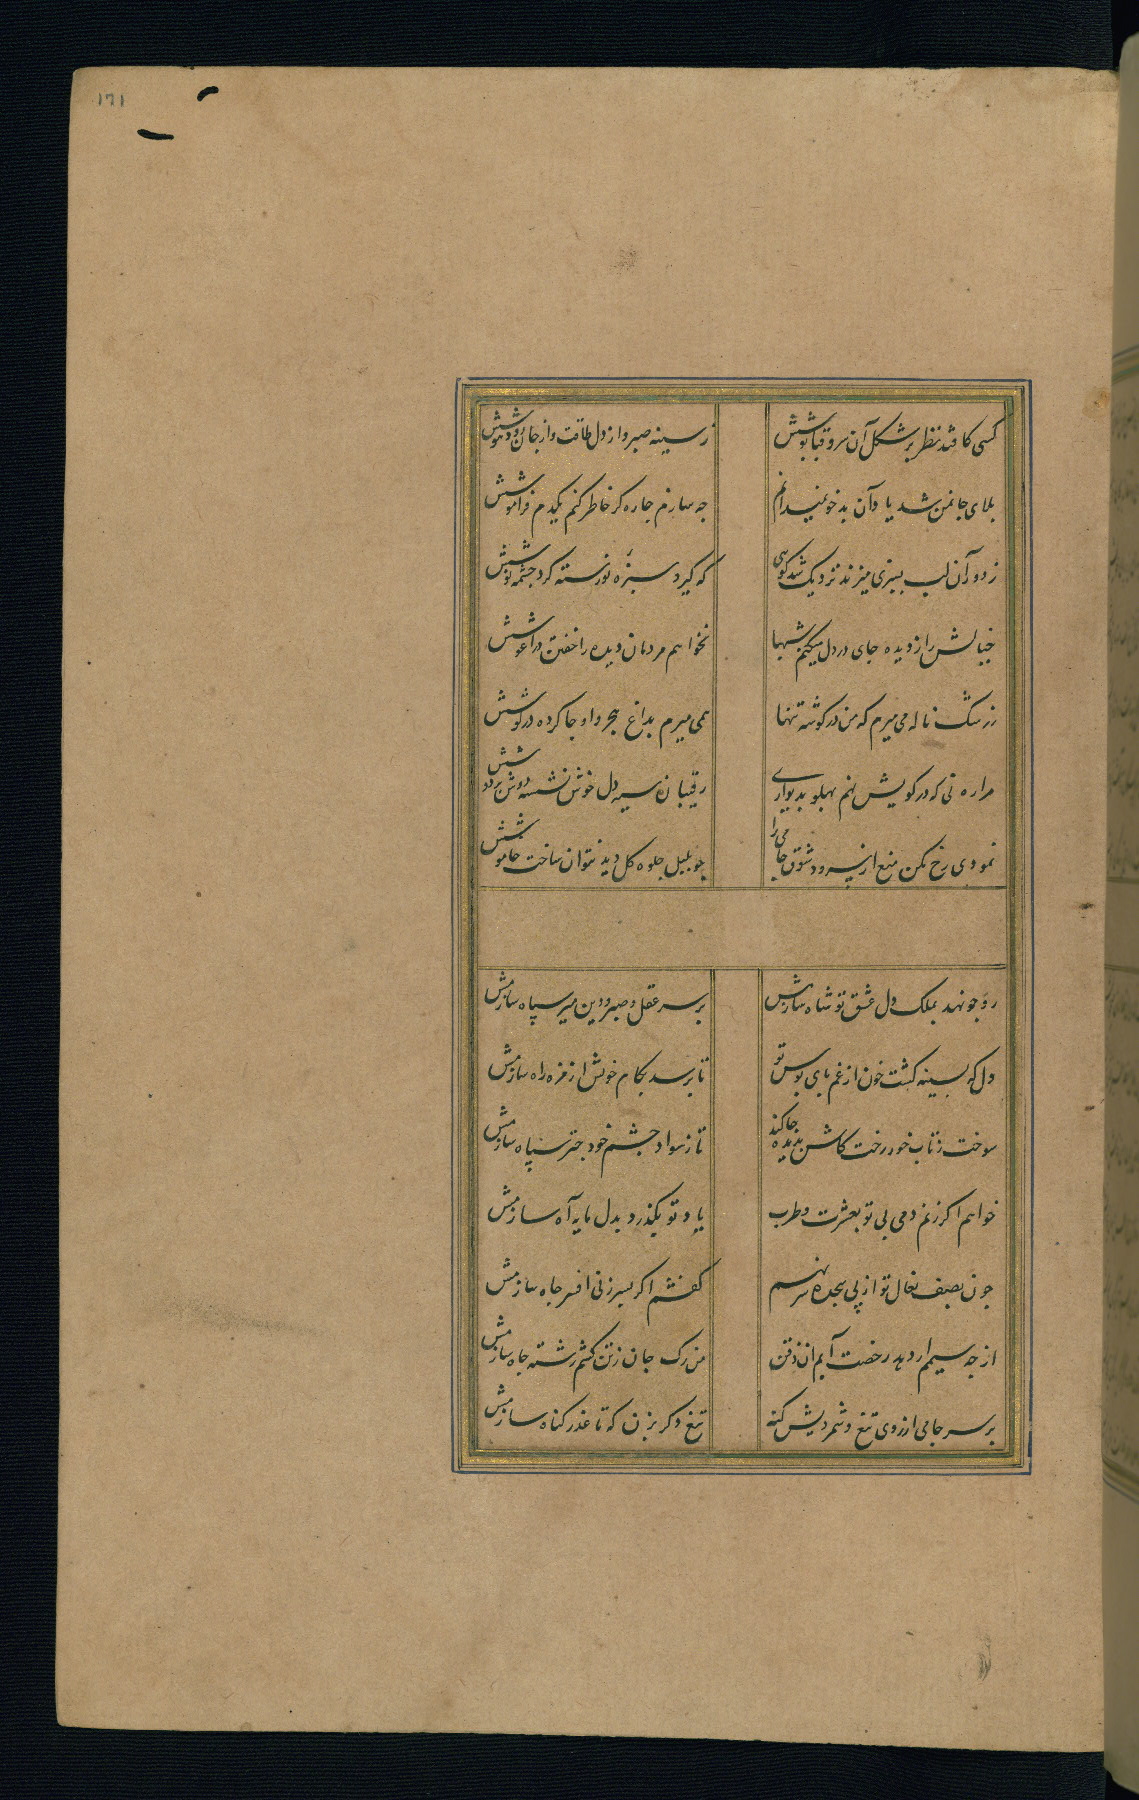 ۱۷۱
کسی کافتد نظر بر شکل آن سرو قباپوشش
ز سینه صبر و از دل طاقت و از جان رود هوشش
بلای جان من شد یاد آن بدخو نمیدانم
چه سازم چاره کز خاطر کنم یکدم فراموشش
ز دور آن لب بسبزی میزند نزدیک شد گویی
که گیرد سبزه نورسته گرد چشمه نوشش
خیالش را ز دیده جای در دل میکنم شبها
نخواهم مردمان دیده را خفتن در آغوشش
ز رشک ناله می میرم که من در گوشه تنها
همی میرم بداغ هجر و او جا کرده در گوشش
مرا ره نی که در کویش نهم پهلو بدیواری
رقیبان سیه دل خوش نشسته دوش بر دوشش
نمودی رخ مکن منع از سرود شوق جامی را
چو بلبل جلوه گل دید نتوان ساخت خاموشش
رو چو نهد بملک دل عشق تو شاه سازمش
بر سر عقل و صبر و دین میر سپاه سازمش
دل که بسینه گشت خون از غم پای بوس تو
تا برسد بکام خویش از مژه راه سازمش
سوخت ز تاب خور رخت کاش بدیده جا کند
تا ز سواد چشم خود چتر سیاه سازمش
خواهم اگر زنم دمی بی تو بعشرت و طرب
یاد تو بگذرد بدل مایه آه سازمش
چون بصف نعال تو از پی سجده سر نهم
کفشم اگر بسر زنی افسر جاه سازمش
از چه سیمم ار دهد رخصت آبم آن ذقن
من رگ جان ز تن کشم رشته چاه سازمش
بر سر جامی ارزوی تیغ دگر بزن که تا عذر گناه سازمش